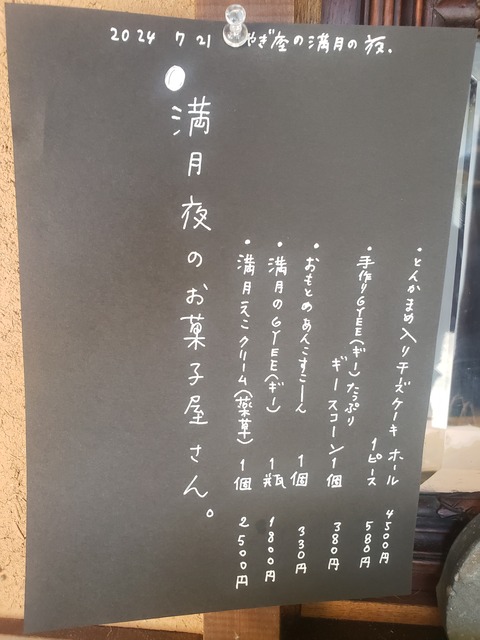 2024 7 21 やぎ座の満月の夜.
満月夜のお菓子屋さん。
・とんかまめ入りチーズケーキ ホール 4500円
1ピース 580円
・手作りGYEE(ギー)たっぷり
ギースコーン 1個 380円
・おもとめあんこすこーん 1個 330円
・満月のGYEE(ギー) 1瓶 1800円
・満月えごクリーム(薬草) 1個 2500円